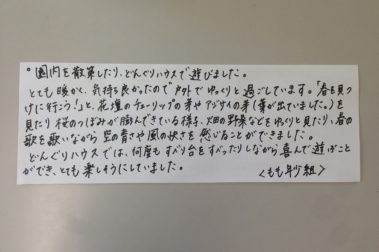 。園内を散策したり、どんぐりハウスで遊びました。
とても暖かく、気持ち良かったので戸外でゆっくりと過ごしています。「春を見つ
けに行こう!」と、花壇のチューリップの芽やアジサイの芽(葉が出ていました。)を
見たり桜のつぼみが膨んできている様子、畑の野菜などをゆっくりと見たり、春の
歌を歌いながら空の青さや風の快さを感じることができました。
どんぐりハウスでは、何度もすべり台をすべったりしながら喜んで遊ぶこと
ができ、とても楽しそうにしていました。
<もも年少組>